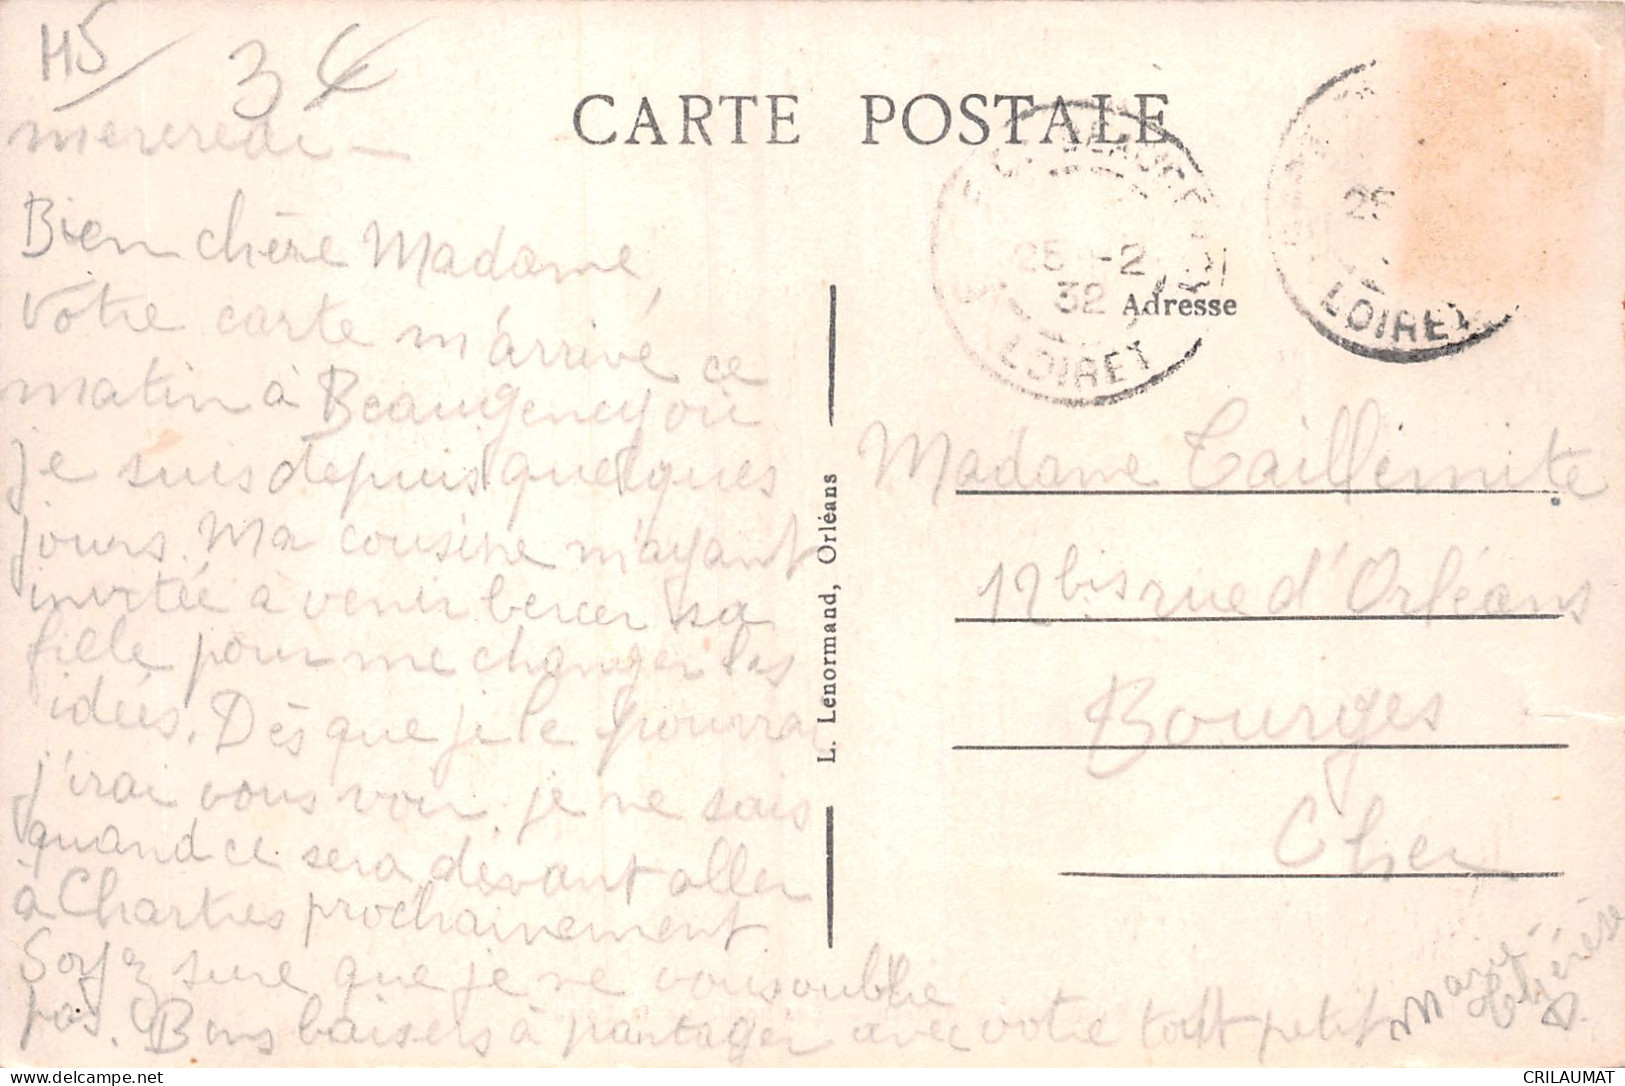 45/ 34
CARTE POSTALE
mercredi —
Bien chère Madame,
Votre carte m'arrive ce
matin à Beaugency où
je suis depuis quelques
jours. Ma cousine m'ayant
invitée à venir bercer sa
fille pour me changer les
idées. Dès que je le pourrai
j'irai vous voir. je ne sais
quand ce sera devant aller
à Chartres prochainement.
Soyez sure que je ne vous oublie
pas. Bons baisers à partager avec votre tout petit
Marie Thérèse
25 -2
32
LOIRET
25
LOIRET
Adresse
Madame Taillemite
12 bis rue d'Orléans
Bourges
Cher
L. Lenormand, Orléans
CRILAUMAT